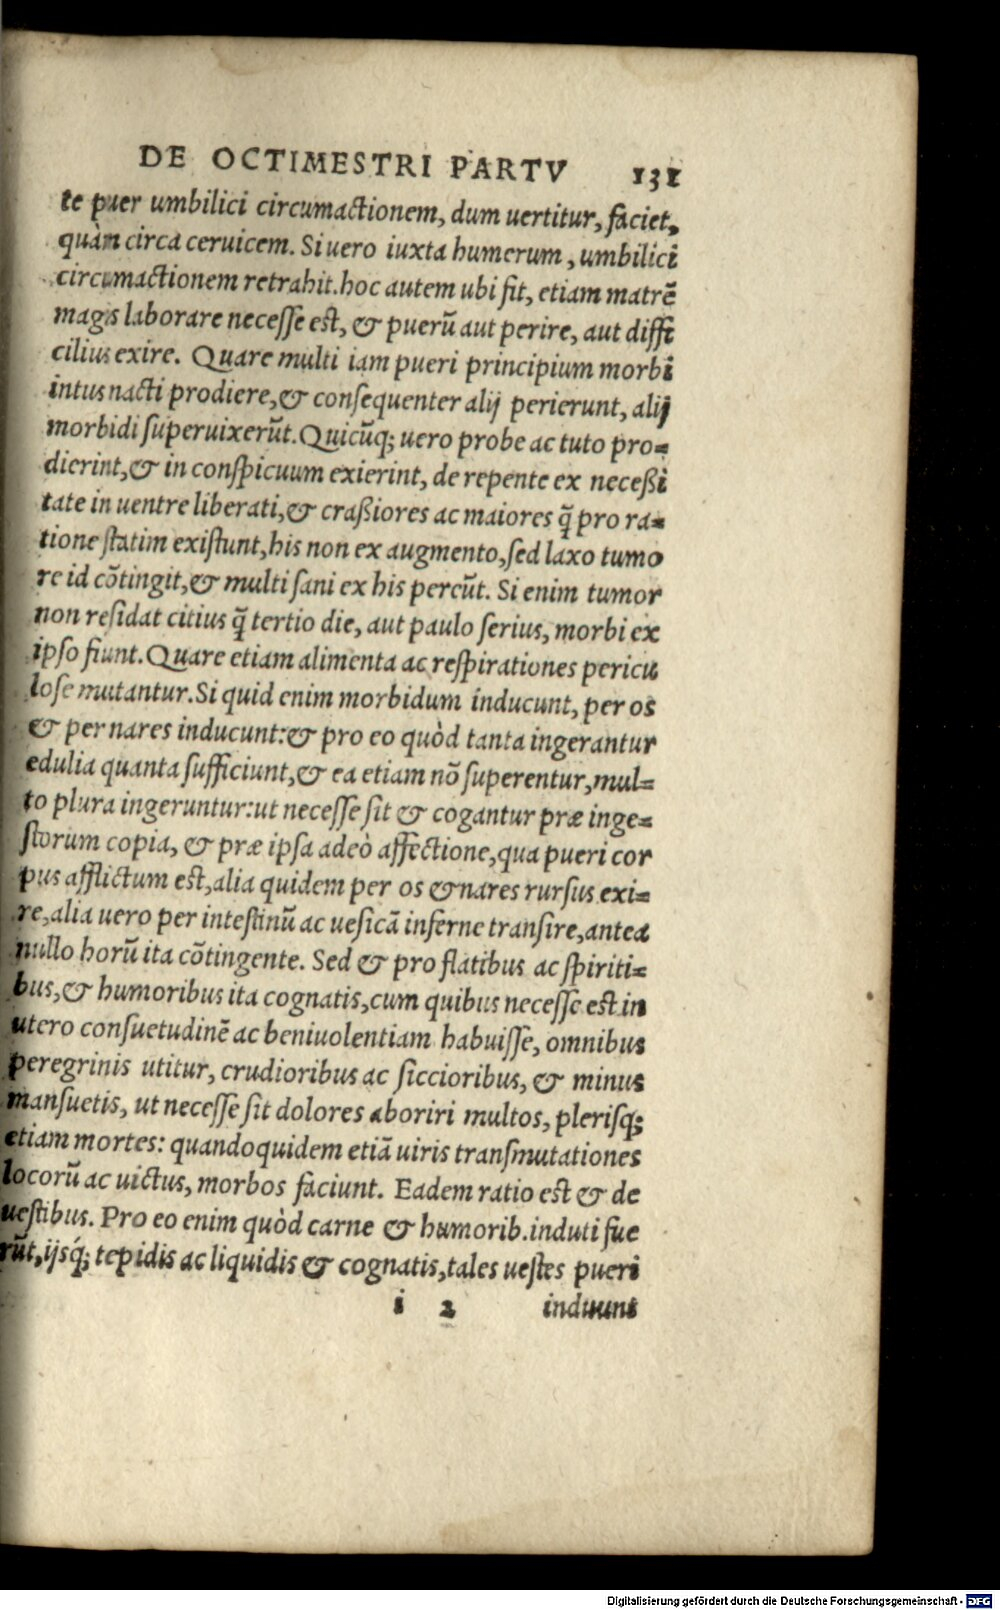 DE OCTIMESTRI PARTV 131
te puer umbilici circumactionem, dum uertitur, faciet,
quàm circa ceruicem. Si uero iuxta humerum, umbilici
circumactionem retrahit. hoc autem ubi fit, etiam matrē
magis laborare necesse est, & puerū aut perire, aut diffi
cilius exire. Quare multi iam pueri principium morbi
intus nacti prodiere, & consequenter alij perierunt, alij
morbidi superuixerūt. Quicūq; uero probe ac tuto pro=
dierint, & in conspicuum exierint, de repente ex neceßi
tate in uentre liberati, & craßiores ac maiores q̄ pro ra=
tione statim existunt, his non ex augmento, sed laxo tumo
re id cōtingit, & multi sani ex his pereūt. Si enim tumor
non residat citius q̄ tertio die, aut paulo serius, morbi ex
ipso fiunt. Quare etiam alimenta ac respirationes pericu
lose mutantur. Si quid enim morbidum inducunt, per os
& per nares inducunt: & pro eo quòd tanta ingerantur
edulia quanta sufficiunt, & ea etiam nō superentur, mul=
to plura ingeruntur: ut necesse sit & cogantur præ inge=
storum copia, & præ ipsa adeò affectione, qua pueri cor
pus afflictum est, alia quidem per os & nares rursus exi=
re, alia uero per intestinū ac uesicā inferne transire, antea
nullo horū ita cōtingente. Sed & pro flatibus ac spiriti=
bus, & humoribus ita cognatis, cum quibus necesse est in
utero consuetudinē ac beniuolentiam habuisse, omnibus
peregrinis utitur, crudioribus ac siccioribus, & minus
mansuetis, ut necesse sit dolores aboriri multos, plerisq;
etiam mortes: quandoquidem etiā uiris transmutationes
locorū ac uictus, morbos faciunt. Eadem ratio est & de
uestibus. Pro eo enim quòd carne & humorib. induti fue
rūt, ijsq́; tepidis ac liquidis & cognatis, tales uestes pueri
i 2 induunt
Digitalisierung gefördert durch die Deutsche Forschungsgemeinschaft - DFG